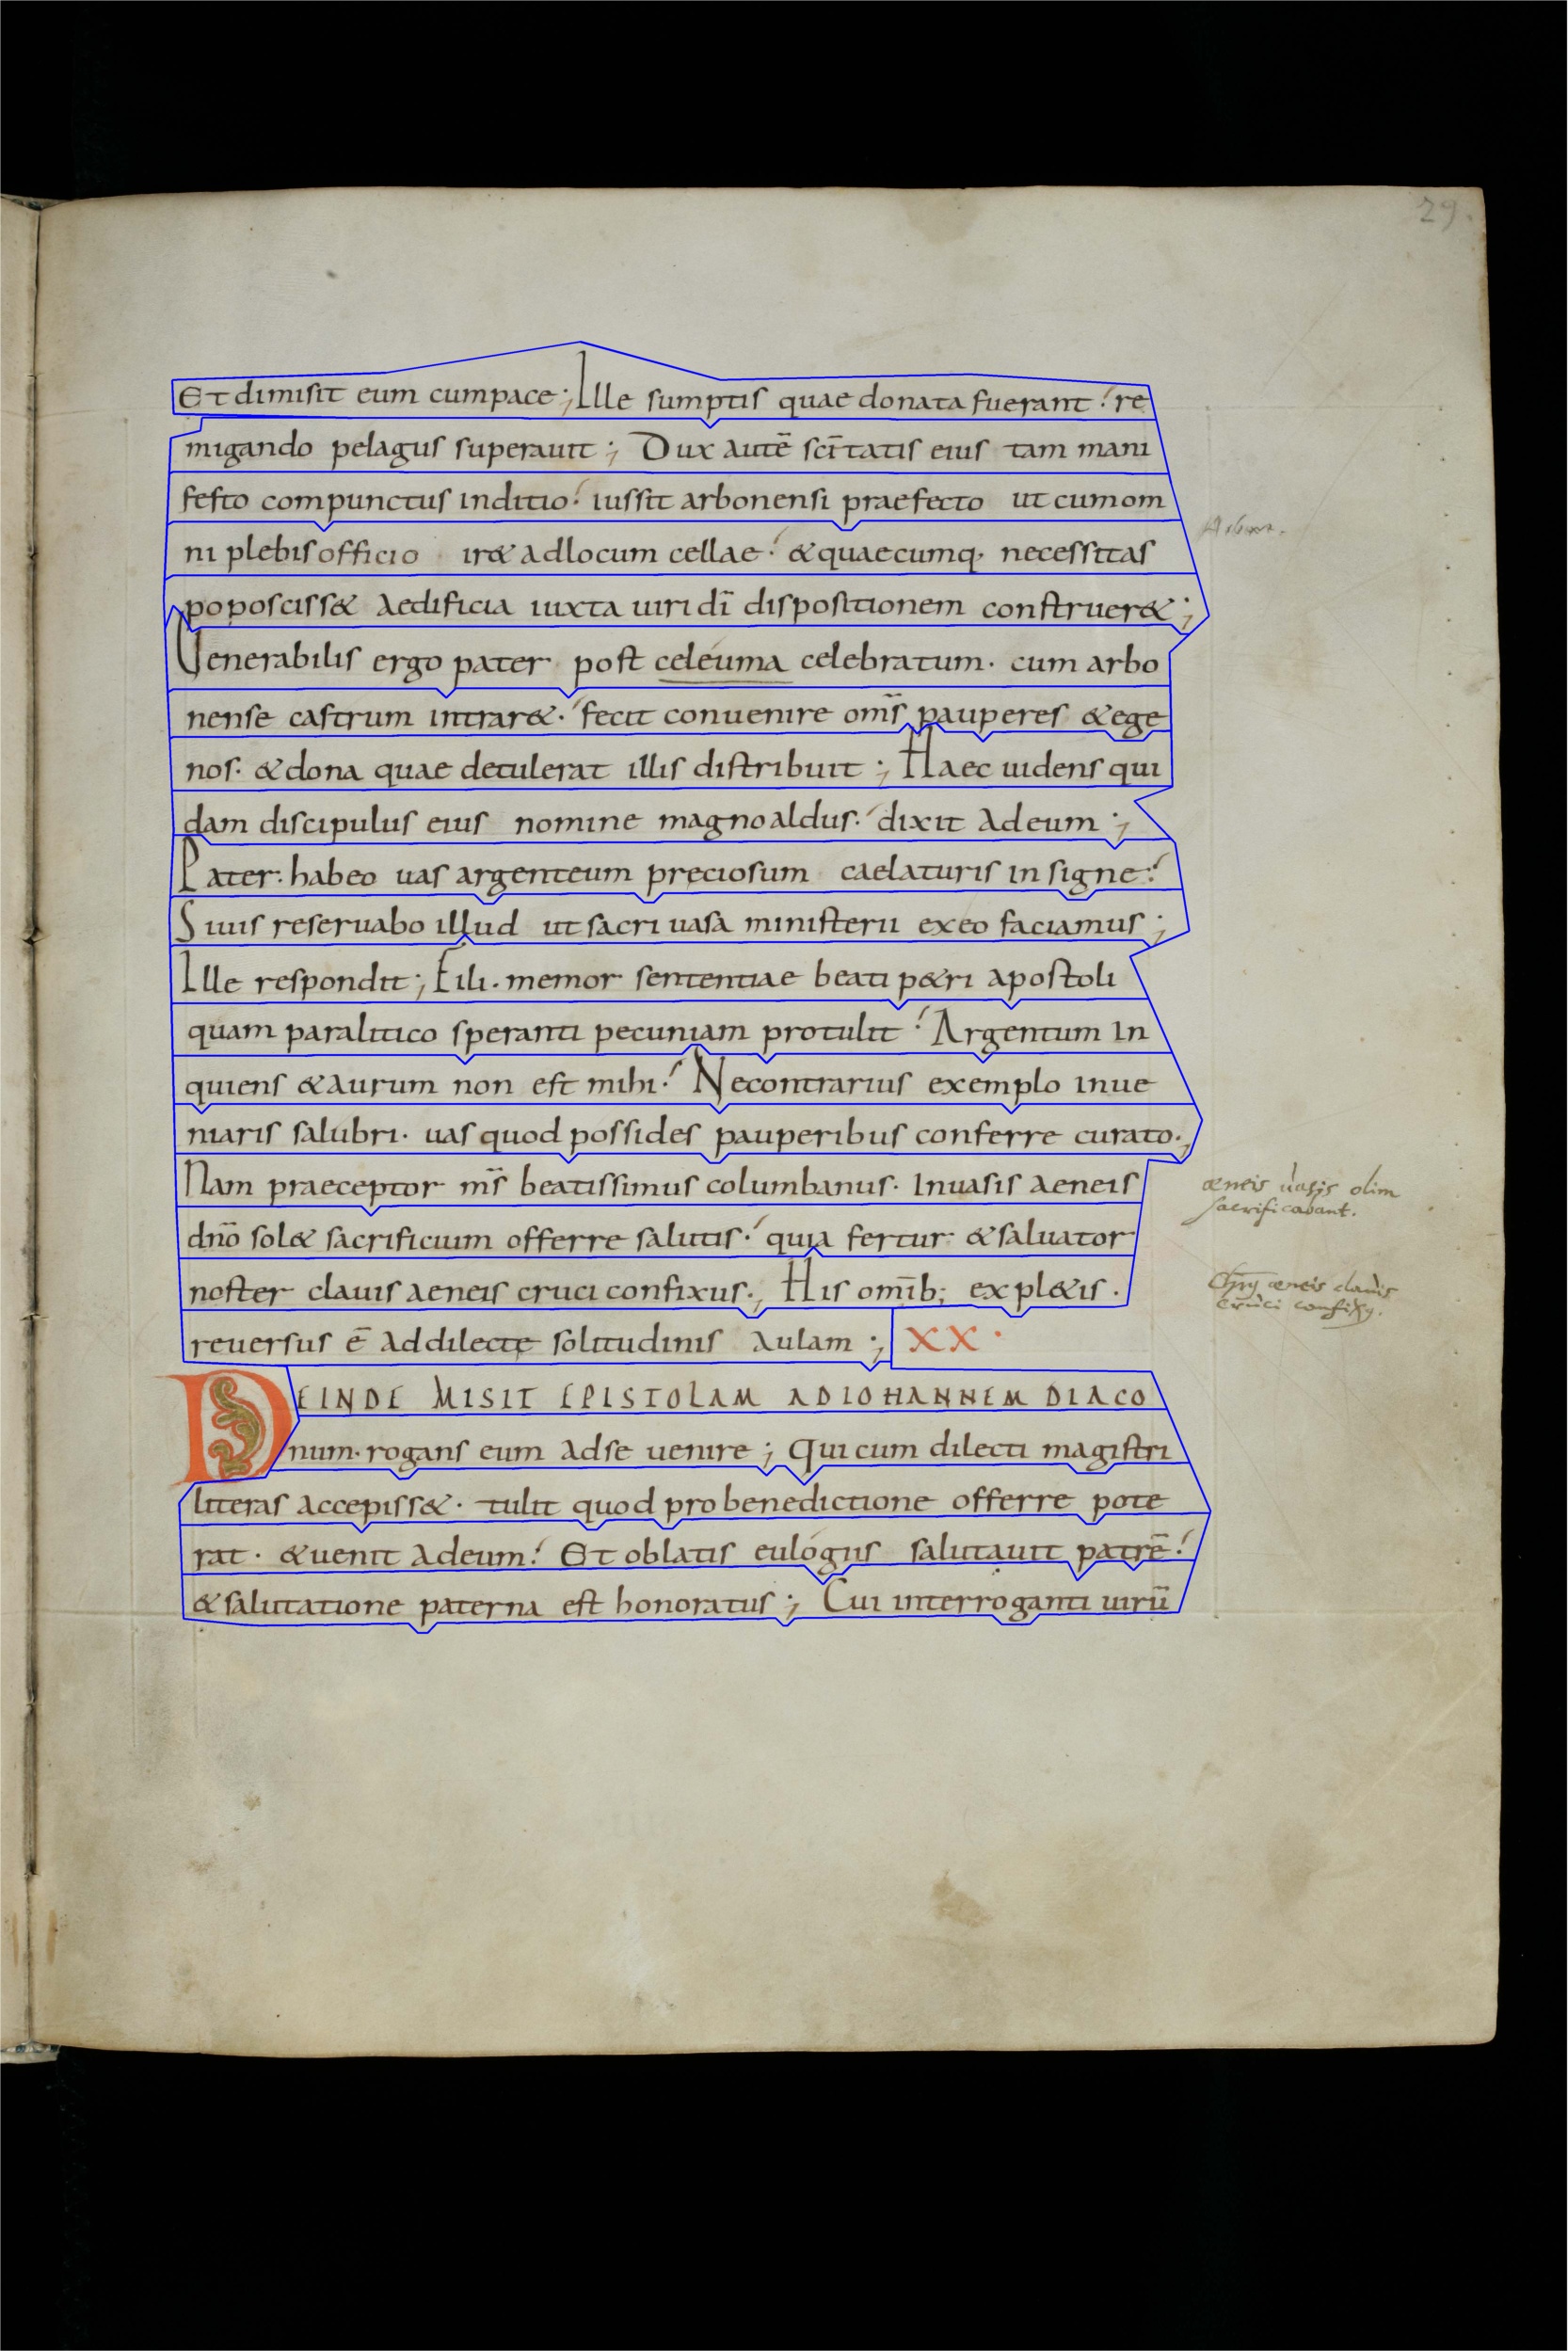 29.
Et dimisit eum cumpace; Ille sumptis quae donata fuerant. re
migando pelagus superauit; Dux autē sc̄itatis eius tam mani
festo compunctus inditio. iussit arbonensi praefecto ut cumom
ni plebis officio ir& adlocum cellae. &quaecumq, necessitas
poposciss& aedificia iuxta uiri dī dispositionem construer&;
Venerabilis ergo pater post celeuma celebratum. cum arbo
nense castrum intrar&. fecit conuenire om̄s pauperes &ege
nos. &dona quae detulerat illis distribuit; Haec uidens qui
dam discipulus eius nomine magnoaldus. dixit adeum;
Pater. habeo uas argenteum preciosum caelaturis insigne.
Siuis reseruabo illud ut sacri uasa ministerii exeo faciamus;
Ille respondit; Fili. memor sententiae beati p&ri apostoli
quam paralitico speranti pecuniam protulit. Argentum in
quiens &aurum non est mihi. Necontrarius exemplo inue
niaris salubri. uas quod possides pauperibus conferre curato.,
Nam praeceptor m̄s beatissimus columbanus. Inuasis aeneis
dn̄o sol& sacrificium offerre salutis. quia fertur &saluator
noster clauis aeneis cruci confixus., His om̄ib; expl&is.
reuersus ē addilectę solitudinis aulam; XX.
DEINDE MISIT EPISTOLAM ADIOHANNEM DIACO
num. rogans eum adse uenire; Qui cum dilecti magistri
literas accepiss&. tulit quod pro benedictione offerre pote
rat. &uenit adeum. Et oblatis eulógiis salutauit patrē.
&salutatione paterna est honoratus; Cui interroganti uirū
æneis vasis olim
sacrificabant.
æneis clavis
cruci